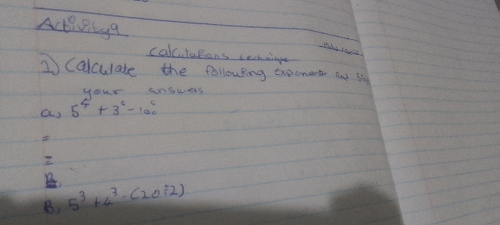 Activity 9
Calculations technique
1) Calculate the following exponents and
your answers
a, 5⁴ + 3° - 100
=
=
B,
B, 5³ + 4³ - (20÷2)